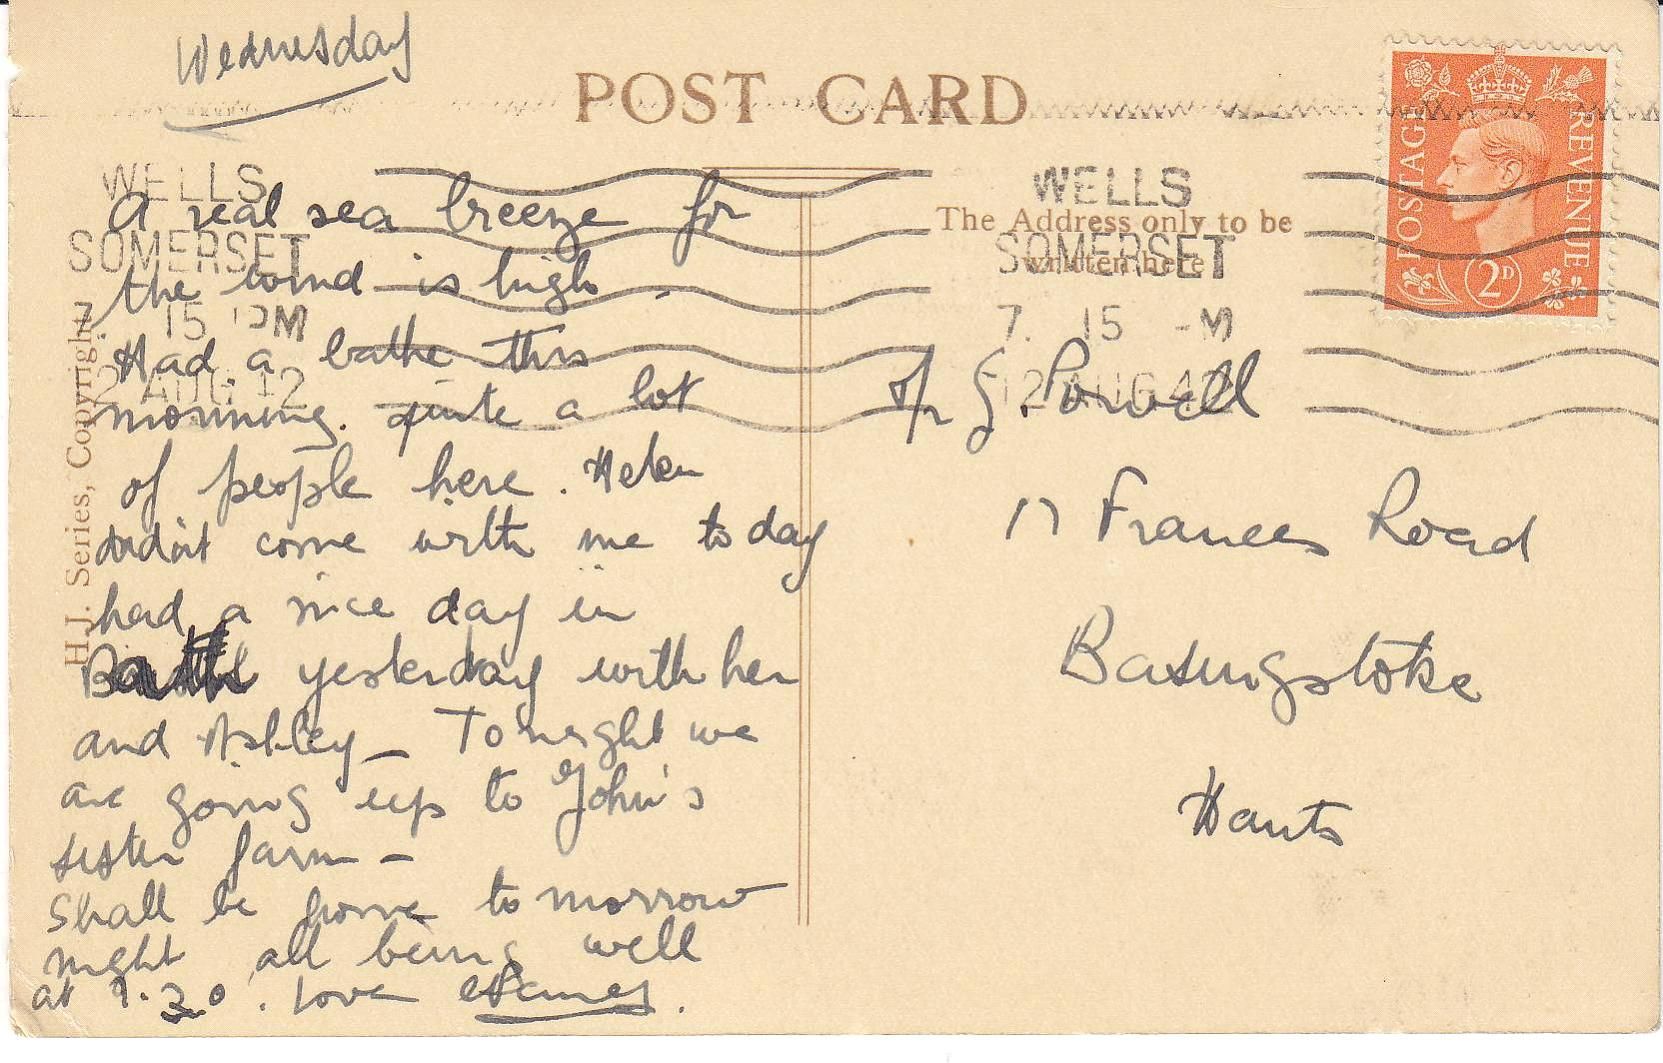 Wednesday
POST CARD
POSTAGE
REVENUE
2D
WELLS
SOMERSET
7. 15 PM
2 AUG 42
WELLS
SOMERSET
7. 15 -M
12 AUG 42
The Address only to be
written here
H.J. Series, Copyright.
A real sea breeze for
the wind is high.
Had a bathe this
morning. quite a lot
of people here. Helen
didn't come with me today
had a nice day in
Bath yesterday with her
and Ashley – Tonight we
are going up to John's
sister farm –
Shall be home tomorrow
night all being well
at 9.30. Love
G. Powell
17 Frances Road
Basingstoke
Hants